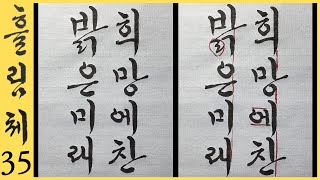 흘림체
35
희망에찬
밝은미래
희망에찬
밝은미래